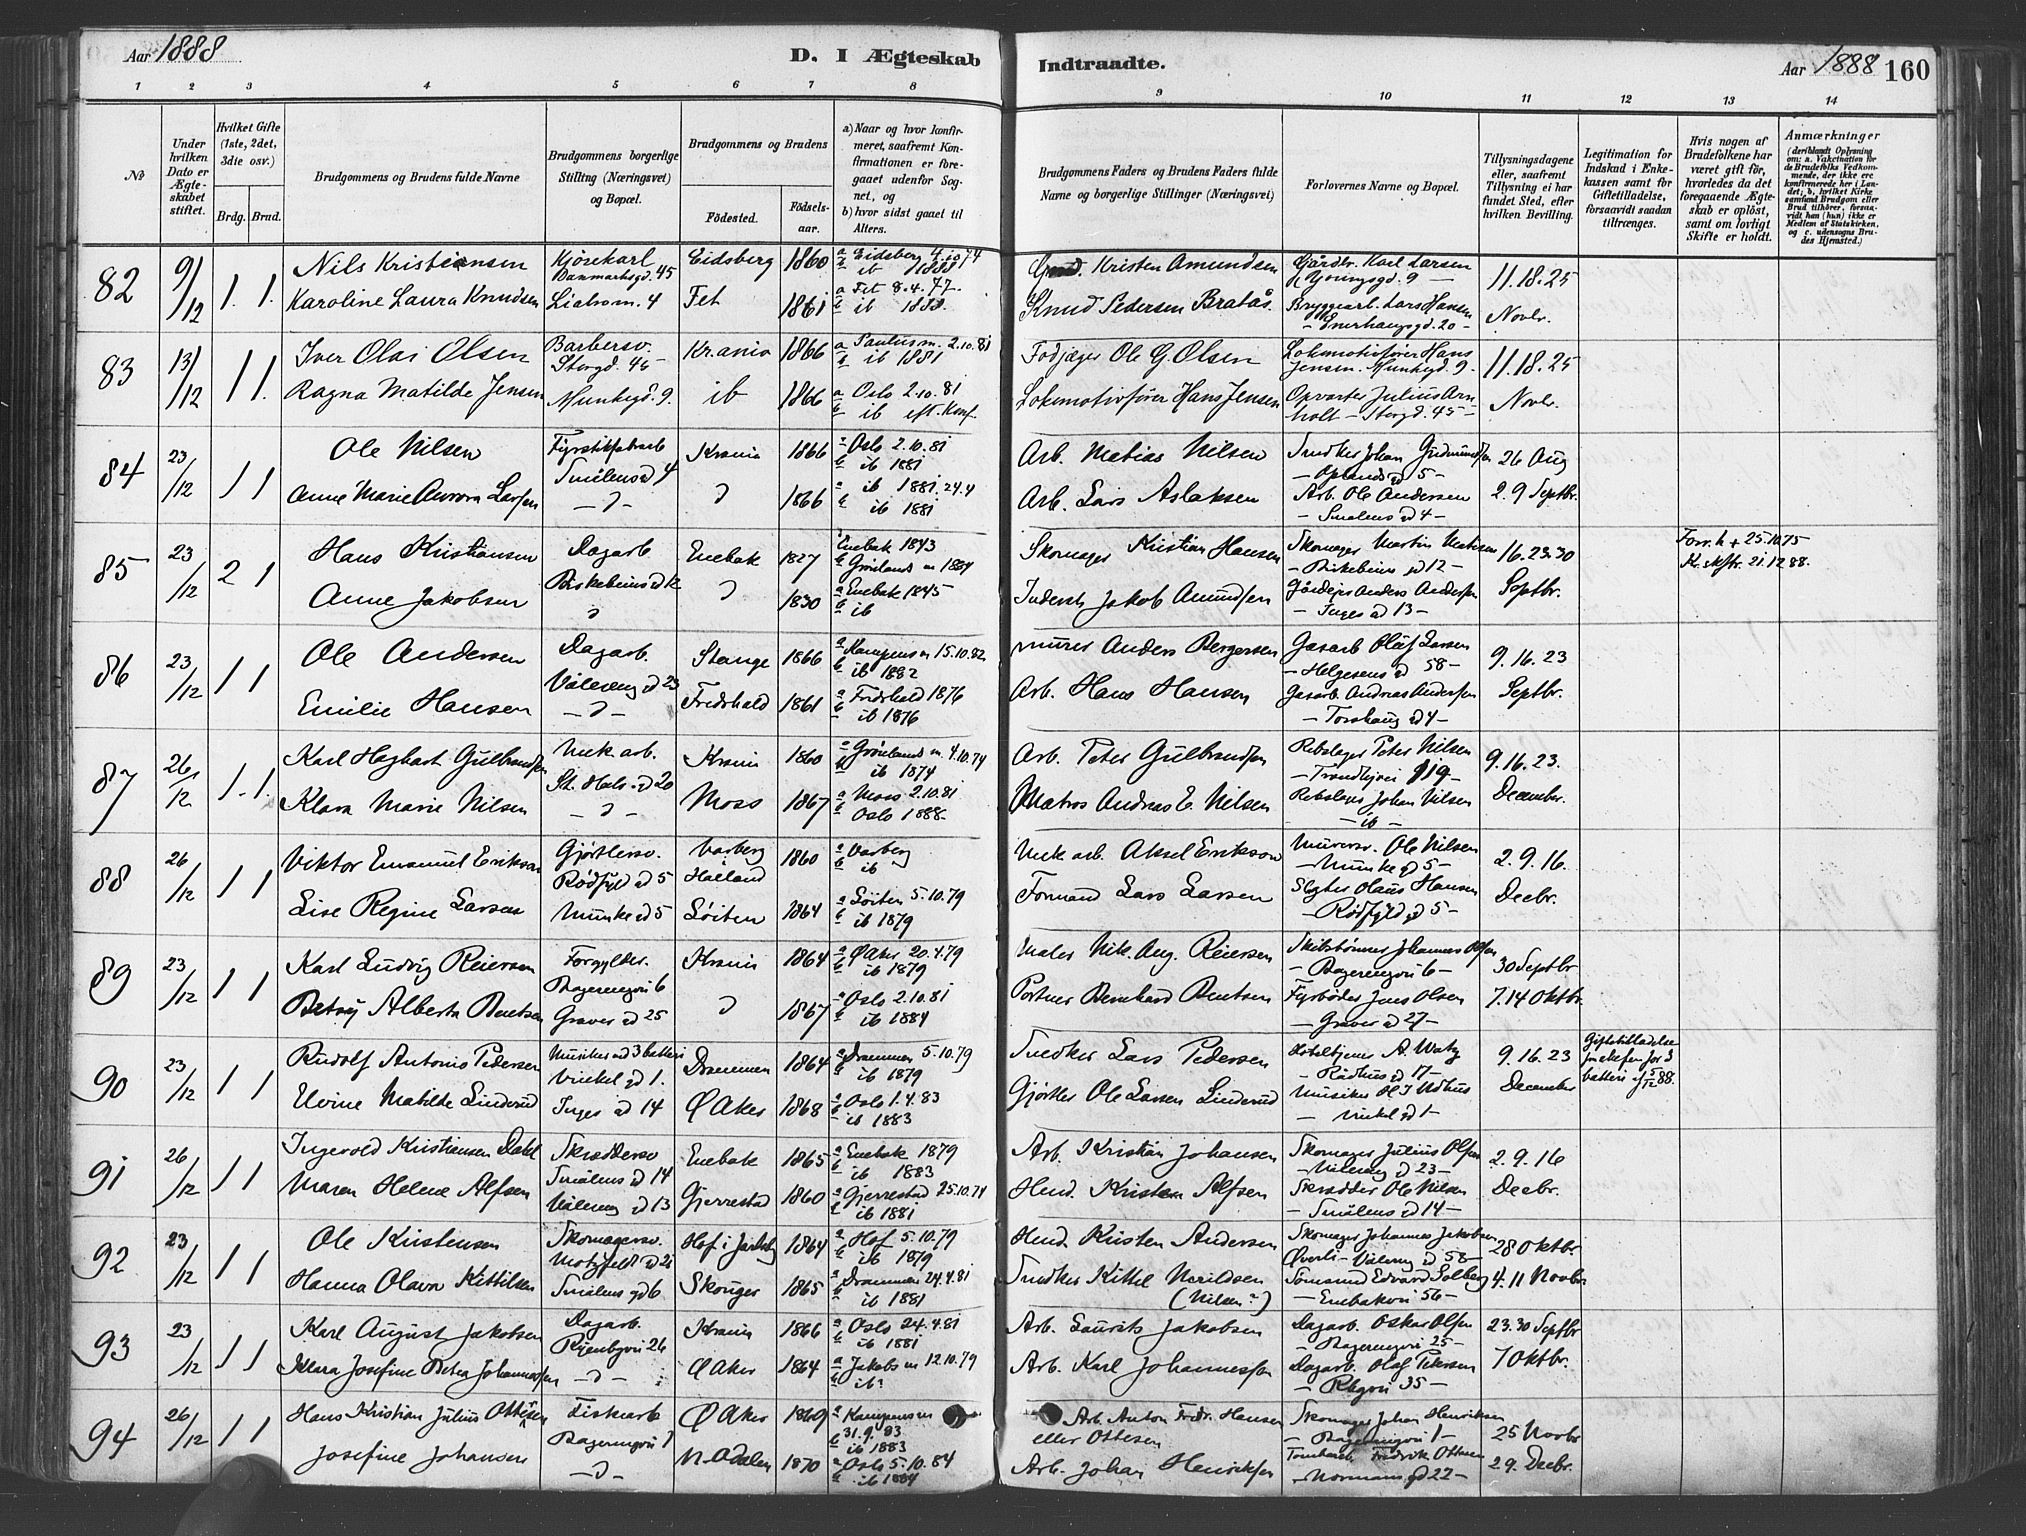 Aar 1888
D. I Ægteskab
Indtraadte.
Aar 1888 160
1 2 3 4 5 6 7 8 9 10 11 12 13 14
No
Under hvilken Dato er Ægteskabet stiftet.
Hvilket Gifte (1ste, 2det, 3die osv.)
Brdg. Brud.
Brudgommens og Brudens fulde Navne
Brudgommens borgerlige Stilling (Næringsvei) og Bopæl.
Brudgommens og Brudens
Födested.
Födselsaar.
a) Naar og hvor konfirmeret, saafremt Konfirmationen er foregaaet udenfor Sognet, og
b) hvor sidst gaaet til Alters.
Brudgommens Faders og Brudens Faders fulde Navne og borgerlige Stillinger (Næringsvei)
Forlovernes Navne og Bopæl.
Tillysningsdagene eller, saafremt Tillysning ei har fundet Sted, efter hvilken Bevilling.
Legitimation for Indskud i Enkekassen samt for Giftetilladelse, forsaavidt saadan tiltrænges.
Hvis nogen af Brudefolkene har været gift før, hvorledes da det foregaaende Ægteskab er oplöst, samt om lovligt Skifte er holdt.
Anmærkninger
82 9/12 1. 1.
Nils Kristiansen
Karoline Laura Knudsen
Kjørekarl
Danmarksgd. 45
Eidsberg 1860
Fet 1861
a Eidsberg 4.10 74
b ib 1888
a Fet 8.4.77
b ib 1888.
Kristen Amundsen
Knud Pedersen Bratås.
Gårdbr. Karl Larsen
Bryggearb. Lars Hansen
– Enerhaugsgd. 20 –
11.18.25
Novbr.
83 13/12 1 1.
Iver Olai Olsen
Ragna Matilde Jensen
Barbersv.
Storgd. 45 –
Munkegd. 9.
Krania 1866
ib 1866
a Paulus m. 2.10.81
b ib 1881
a Oslo 2.10.81
b ib eft. Konf.
Ole G. Olsen
Lokomotivfører Hans Jensen
Lokomotivfører Hans Jensen. Munkegd. 9.
Opvarter Julius Arnholt – Storgd. 45 –
11.18.25
Novbr.
84 23/12 1 1
Ole Nilsen
Anne Marie Aurora Larsen
Fyrstikfabarb
Smålensgd 4
Krania 1866
1866
a Oslo 2.10.81
b ib 1881
a ib 1881. 24.4
b ib 1881
Arb. Matias Nilsen
Arb. Lars Aslaksen
Snedker Johan Gudmundsen
– Oplandsgd 5 –
Arb. Ole Andersen
– Smålensgd 4 –
26 Aug
2. 9 Septbr.
85 23/12 2 1
Hans Kristiansen
Anne Jakobsen
Dagarb
Birkebeinsgd 12
Enebak 1827
1830
a Enebak 1843
b Grønlands m 1884
a Enebak 1845
b ib
Skomager Kristian Hansen
Inderst Jakob Amundsen
Skomager Martin Matisen
– Birkebeinsgd 12 –
Gårdejer Anders Andersen
– Ingesgd 13 –
16.23.30
Septbr.
Forr. h + 25.10.75
21.12.88.
86 23/12 1 1
Ole Andersen
Emilie Hansen
Dagarb.
Vålerenggd 23
Stange 1866
Fredshald 1861
a Kampens m 15.10.82
b ib 1882
a Fredshald 1876
b ib 1876
Murer Anders Bergersen
Arb. Hans Hansen
Gasarb Olaf Larsen
– Helgesensgd 58 –
Gasarb. Andreas Andersen
– Torshauggd 4 –
9.16.23
Septbr.
87 26/12 1. 1.
Karl Hagbart Gulbrandsen
Klara Marie Nilsen
Mek arb.
St. Hals.gd 20
Krania 1860
Moss 1867
a Grønlands m. 4.10.74
b ib 1874
a Moss 2.10.81
b Oslo 1888
Arb. Peter Gulbrandsen
Matros Andreas E. Nilsen
Rebslager Peter Nilsen
– Trondhjvei 119 –
Rebslager Johan Nilsen
– ib –
9.16.23.
December.
88 26/12 1 1
Viktor Emanuel Erikson
Lise Regine Larsen
Gjørtlersv.
Rødfyldgd 5
Munkegd 5
Varberg Halland 1860
Løiten 1864
a Varberg
b ib
a Løiten 5.10.79
b ib 1879
Mek arb. Aksel Erikson
Formand Lars Larsen
Murersv. Ole Nilsen
– Munkegd 5 –
Hans Hansen
– Rødfyldgd 5 –
2. 9. 16.
Decbr.
89 23/12 1 1
Karl Ludvig Reiersen
Betsy Alberta Bentsen
Forgylder.
Bagerengvei 6
Gravergd 25
Krania 1864
1867
a Ø Aker 20.4.79
b ib 1879
a Oslo 2.10.81
b ib 1884
Maler Nik. Aug. Reiersen
Portner Bernhard Bentsen
Skibstømmer Johannes Olsen
– Bagerengvei 6 –
Fyrbøder Jens Olsen
– Gravergd 27 –
30 Septbr
7.14 Oktbr.
90 23/12 1 1
Rudolf Antonis Pedersen
Elvine Matilde Linderud
Musiker ved 3 batteri
Vinkelgd 1.
Ingesgd 14
Drammen 1864
Ø Aker 1868
a Drammen 5.10.79
b ib 1879
a Oslo 1.4.83
b ib 1883
Snedker Lars Pedersen
Gjørtler Ole Larsen Linderud
Hoteltjener A. Watz
– Rådhusgd 17 –
Musiker Ol I Udhus
– Vinkelgd 1 –
9.16.23
December
Giftetilladelse
batteri af 5/12 88.
91 26/12 1 1
Ingevold Kristiansen Dahl
Maren Helene Alfsen
Skræddersv
Smålensgd 14
Vålerenggd 13
Enebak 1865
Gjerrestad 1860
a Enebak 1879
b ib 1883
a Gjerrestad 25.10.74
b ib 1881
Arb. Kristian Johansen
Kristen Alfsen
Skomager Julius Olsen
– Vålerenggd 23 –
Skrædder Ole Nilsen
– Smålensgd 14 –
2. 9. 16
Decbr.
92 23/12 1 1
Ole Kristensen
Hanna Olava Kittilsen
Skomagersv.
Smålensgd 6
Hof i Jarlsbg 1864
Skouger 1865
a Hof 5.10.79
b ib 1879
a Drammen 24.4.81
b ib 1881
Kristen Andersen
Snedker Kittel Nerildsen
(Nilsen?)
Skomager Johannes Jakobsen
Øverli – Vålerenggd 58 –
Edvard Solberg
– Enebakvei 56 –
28 Oktbr
4.11 Novbr
93 23/12 1 1
Karl August Jakobsen
Klara Josefine Petrea Johannessen
Dagarb.
Krania 1866
Ø Aker 1864
a Oslo 24.4.81
b ib 1881
a Jakobs m 12.10.79
b ib?
Arb. Laurits Jakobsen
Arb. Karl Johannessen
Dagarb. Oskar Olsen
– Bagerengvei 25 –
Dagarb. Olaf Petersen
23.30 Septbr
7 Oktbr.
94 26/12 1 1
Hans Kristian Julius Ottesen
Josefine Johansen
Fiskarb
Bagerengvei 1
Ø Aker 1869
N. Odalen 1870
a Kampens m
31.9.83
b ib 1883
a Oslo 5.10.84
b ib 1884
Arb. Anton Fredr. Hansen
eller Ottesen
Arb. Johan Henriksen
Skomager Johan Henriksen
– Bagerengvei 1 –
Fredrik Ottesen
– Normansgd 22 –
25 Novbr
29. Decbr.